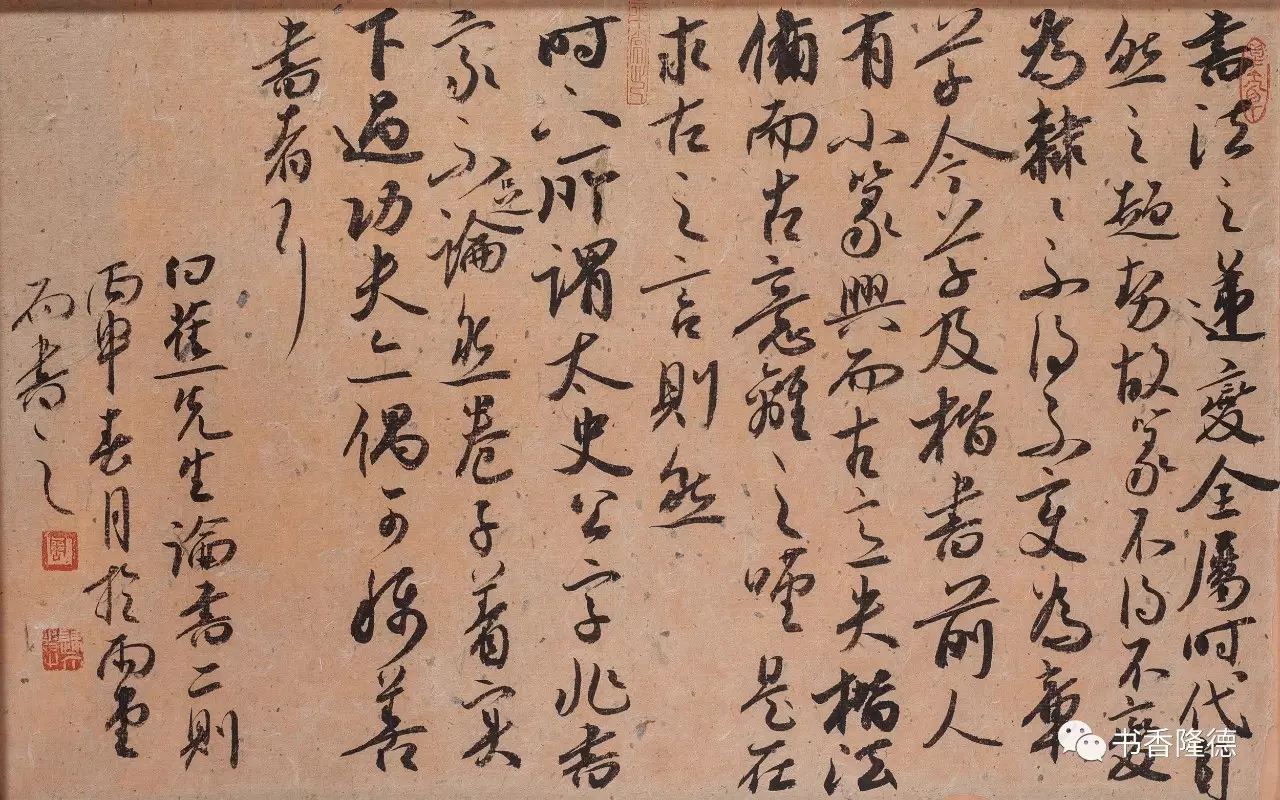 書法之遞變全屬時代自
然之趨勢故篆不得不變
為隸々不得不變為章
草今草及楷書前人
有小篆興而古意失楷法
備而古意離之嘆是在
求古之言則然
時人所謂太史公字非書
家不足論然卷子着實
下過功夫亦偶可善
書者
白蕉先生論書二則
丙申春月於雨堂
書之
书香隆德